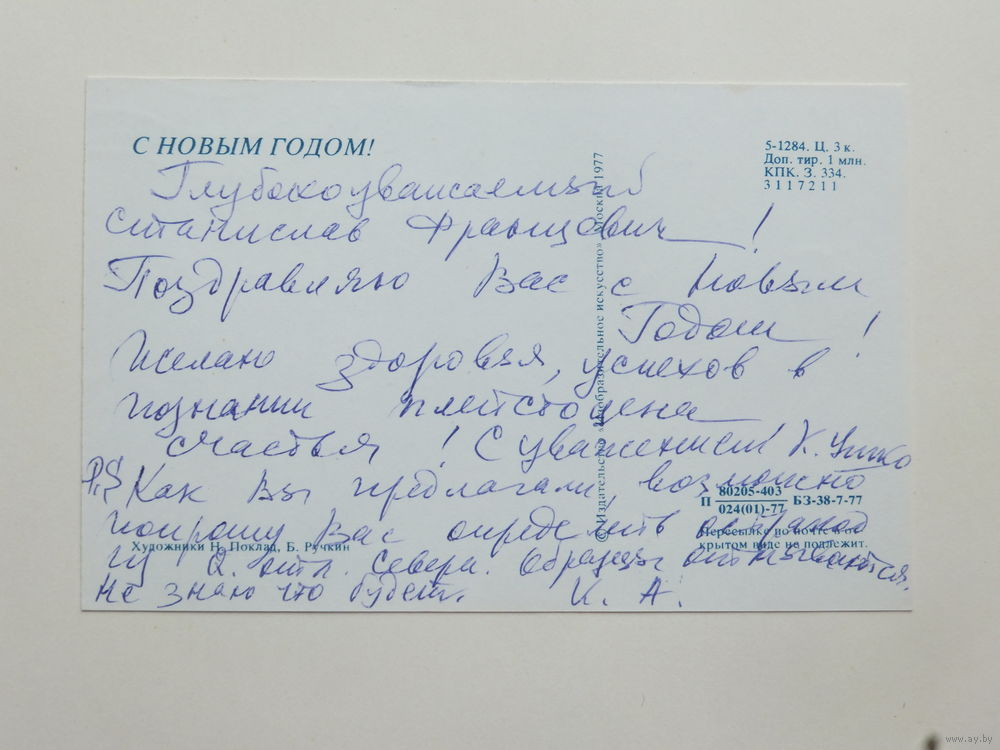 С НОВЫМ ГОДОМ!
5-1284. Ц. 3 к.
Доп. тир. 1 млн.
КПК. З. 334.
3117211
Глубокоуважаемый
Станислав Францевич!
Поздравляю Вас с Новым
Годом!
Желаю здоровья, успехов в
познании плейстоцена
счастья! С уважением К.
P.S Как Вы предлагали, возможно
попрошу Вас определить
из Q. отл. Севера. Образцы отмываются.
Не знаю что будет. К. А.
© Издательство «Изобразительное искусство» Москва 1977
П 80205-403 БЗ-38-7-77
024(01)-77
Пересылке по почте в от-
крытом виде не подлежит.
Художники Н. Поклад, Б. Ручкин
www.ay.by